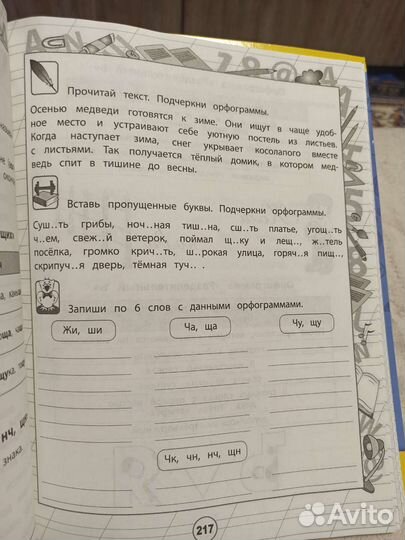 Прочитай текст. Подчеркни орфограммы.
Осенью медведи готовятся к зиме. Они ищут в чаще удоб-
ное место и устраивают себе уютную постель из листьев.
Когда наступает зима, снег укрывает косолапого вместе
с листьями. Так получается тёплый домик, в котором мед-
ведь спит в тишине до весны.
Вставь пропущенные буквы. Подчеркни орфограммы.
Суш..ть грибы, ноч..ная тиш..на, сш..ть платье, угощ..ть
ч..ем, свеж..й ветерок, поймал щ..ку и лещ.., ж..тель
посёлка, громко крич..ть, ш..рокая улица, горяч..я пищ..,
скрипуч..я дверь, тёмная туч.. .
Запиши по 6 слов с данными орфограммами.
Жи, ши
Ча, ща
Чу, щу
Чк, чн, нч, нщ
217
нч, щ
знака.
Avito